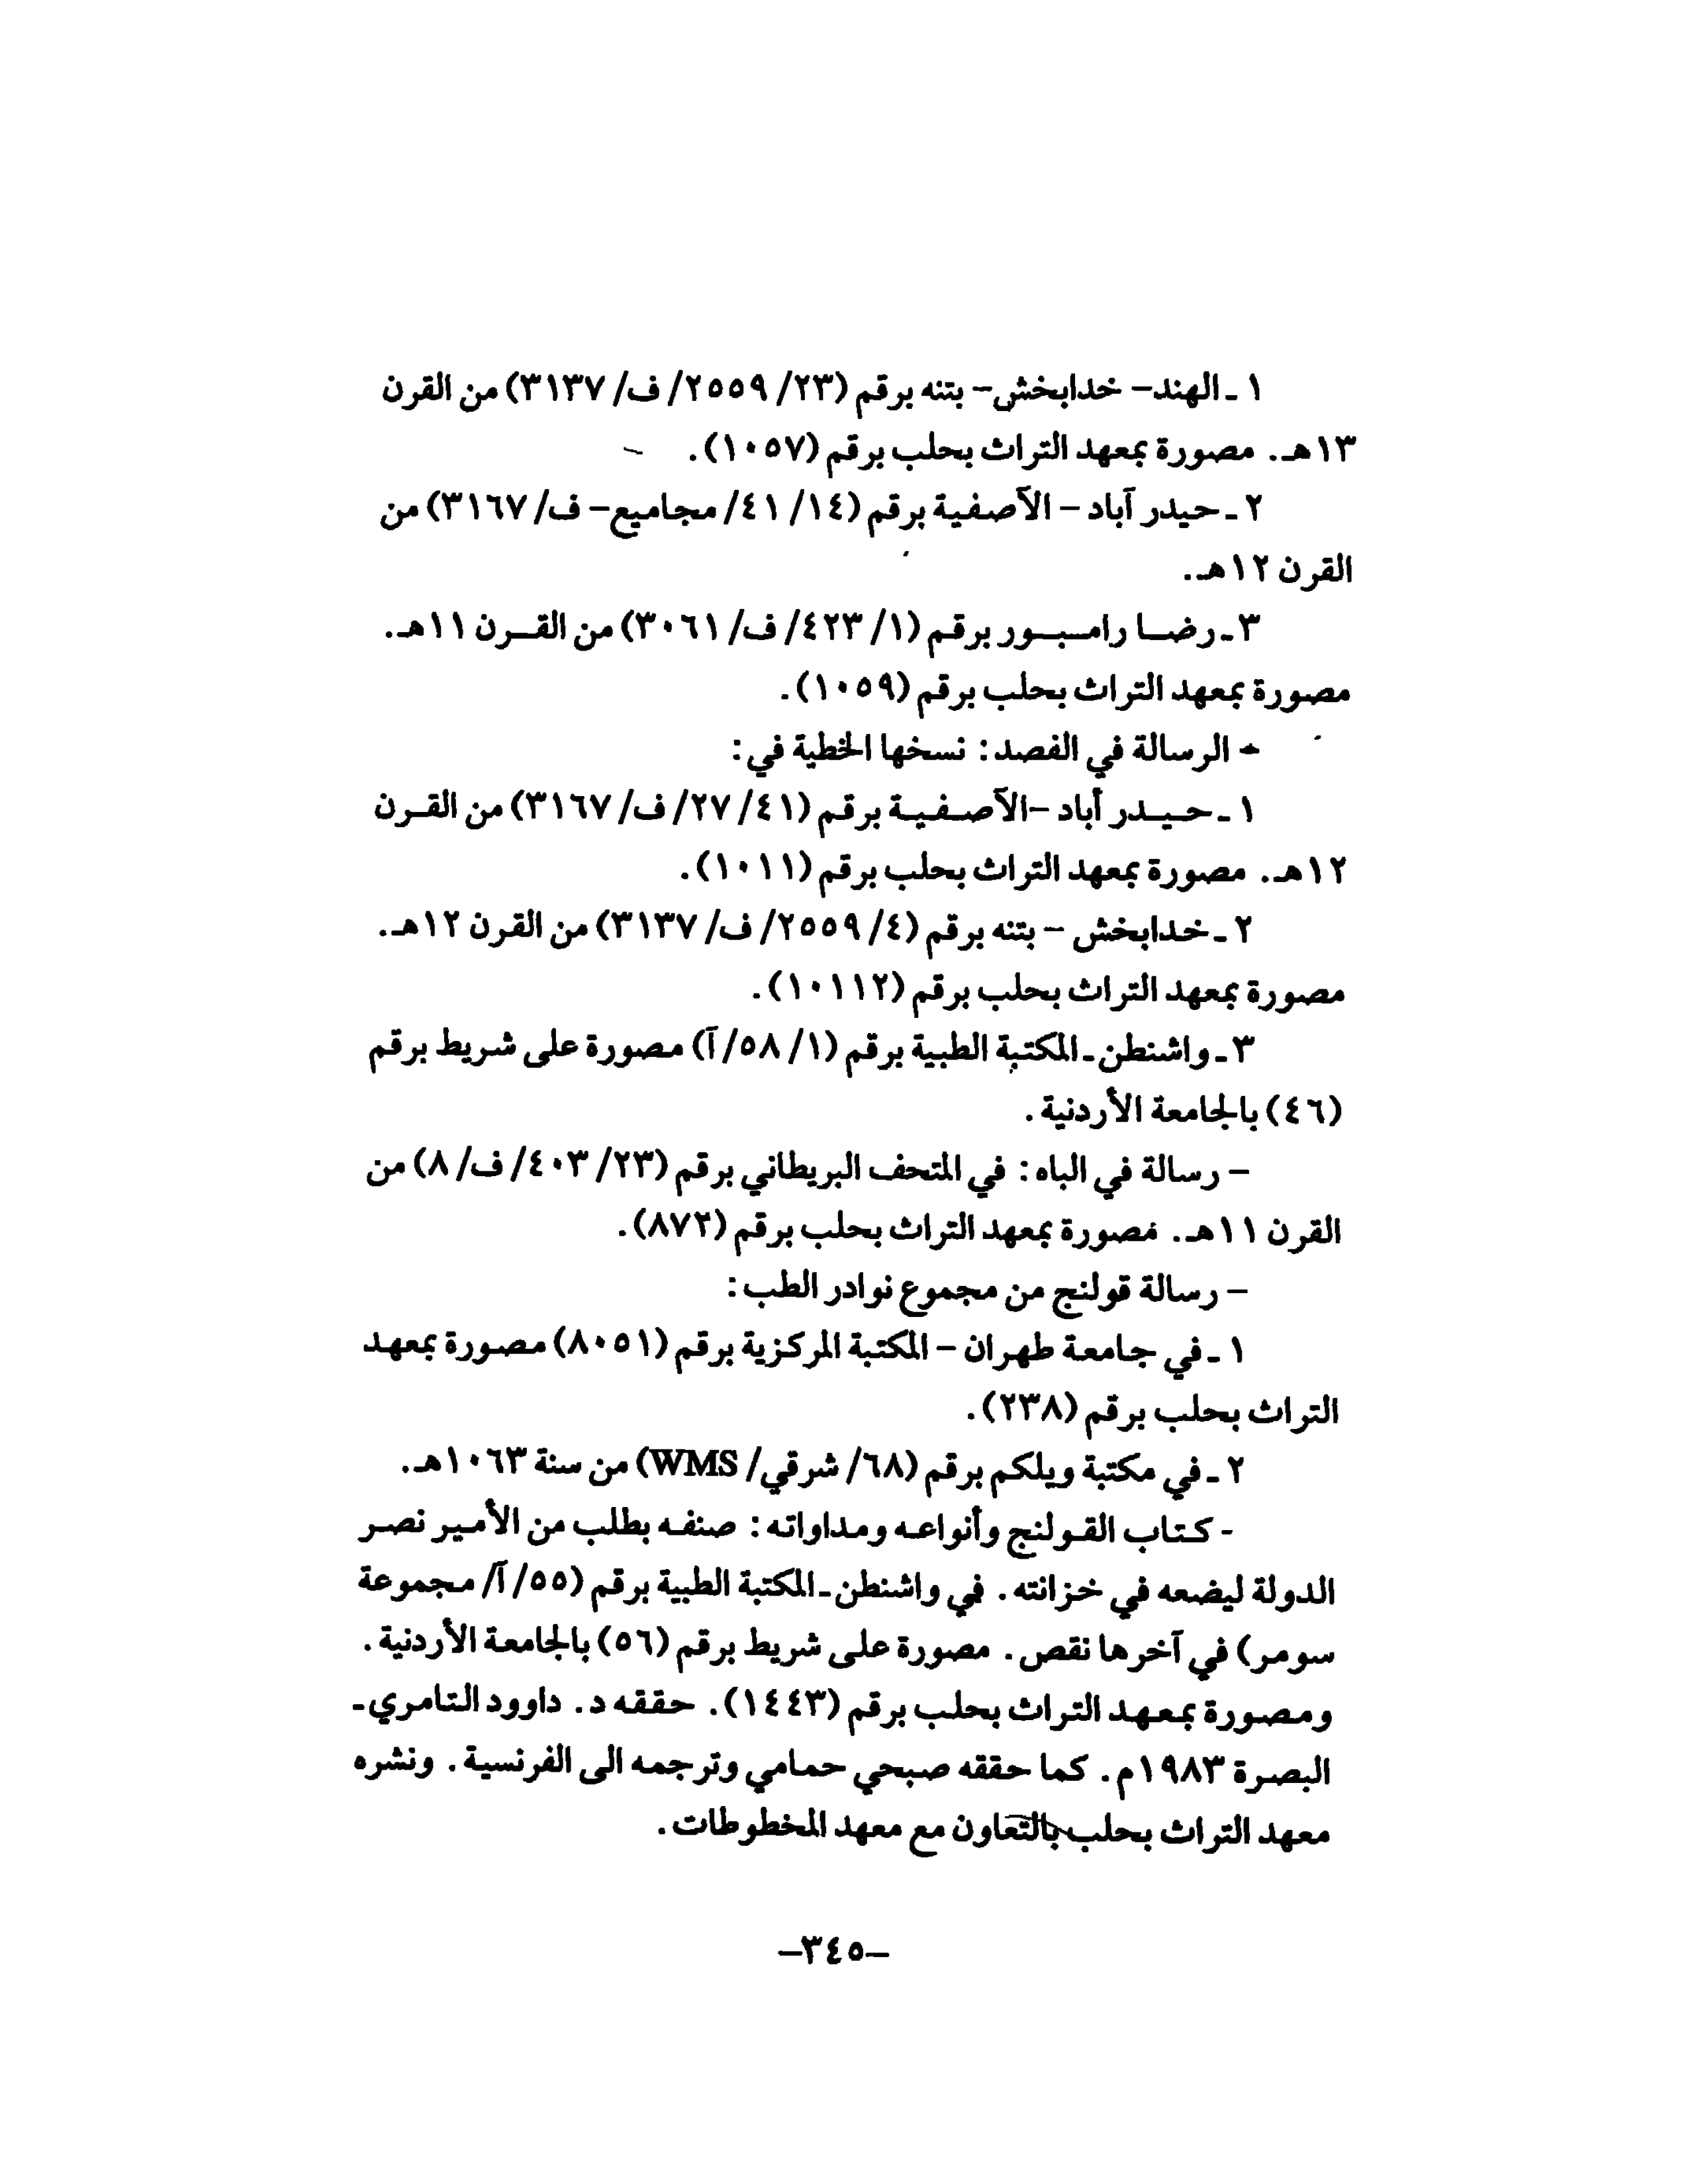 ١ ـ الهند – خدابخش – بتنه برقم (٢٣/ ٢٥٥٩/ ف/ ٣١٣٧) من القرن
١٣هـ. مصورة بمعهد التراث بحلب برقم (١٠٥٧).
٢ ـ حيدر آباد – الآصفية برقم (١٤/ ٤١/ مجاميع – ف/ ٣١٦٧) من
القرن ١٢هـ.
٣ ـ رضا رامبور برقم (١/ ٤٢٣/ ف/ ٣٠٦١) من القرن ١١هـ.
مصورة بمعهد التراث بحلب برقم (١٠٥٩).
- الرسالة في الفصد: نسخها الخطية في:
١ ـ حيدر أباد –الآصفية برقم (٤١/ ٢٧/ ف/ ٣١٦٧) من القرن
١٢هـ. مصورة بمعهد التراث بحلب برقم (١٠١١).
٢ ـ خدابخش – بتنه برقم (٤/ ٢٥٥٩/ ف/ ٣١٣٧) من القرن ١٢هـ.
مصورة بمعهد التراث بحلب برقم (١٠١١٢).
٣ ـ واشنطن ـ المكتبة الطبية برقم (١/ ٥٨/ آ) مصورة على شريط برقم
(٤٦) بالجامعة الأردنية.
– رسالة في الباه: في المتحف البريطاني برقم (٢٣/ ٤٠٣/ ف/ ٨) من
القرن ١١هـ. مصورة بمعهد التراث بحلب برقم (٨٧٢).
– رسالة قولنج من مجموع نوادر الطب:
١ ـ في جامعة طهران – المكتبة المركزية برقم (٨٠٥١) مصورة بمعهد
التراث بحلب برقم (٢٣٨).
٢ ـ في مكتبة ويلكم برقم (٦٨/ شرقي/ WMS) من سنة ١٠٦٣هـ.
- كتاب القولنج وأنواعه ومداواته: صنفه بطلب من الأمير نصر
الدولة ليضعه في خزانته. في واشنطن ـ المكتبة الطبية برقم (٥٥/ آ/ مجموعة
سومر) في آخرها نقص. مصورة على شريط برقم (٥٦) بالجامعة الأردنية.
ومصورة بمعهد التراث بحلب برقم (١٤٤٣). حققه د. داوود التامري ـ
البصرة ١٩٨٣م. كما حققه صبحي حمامي وترجمه الى الفرنسية. ونشره
معهد التراث بحلب بالتعاون مع معهد المخطوطات.
–٣٤٥–